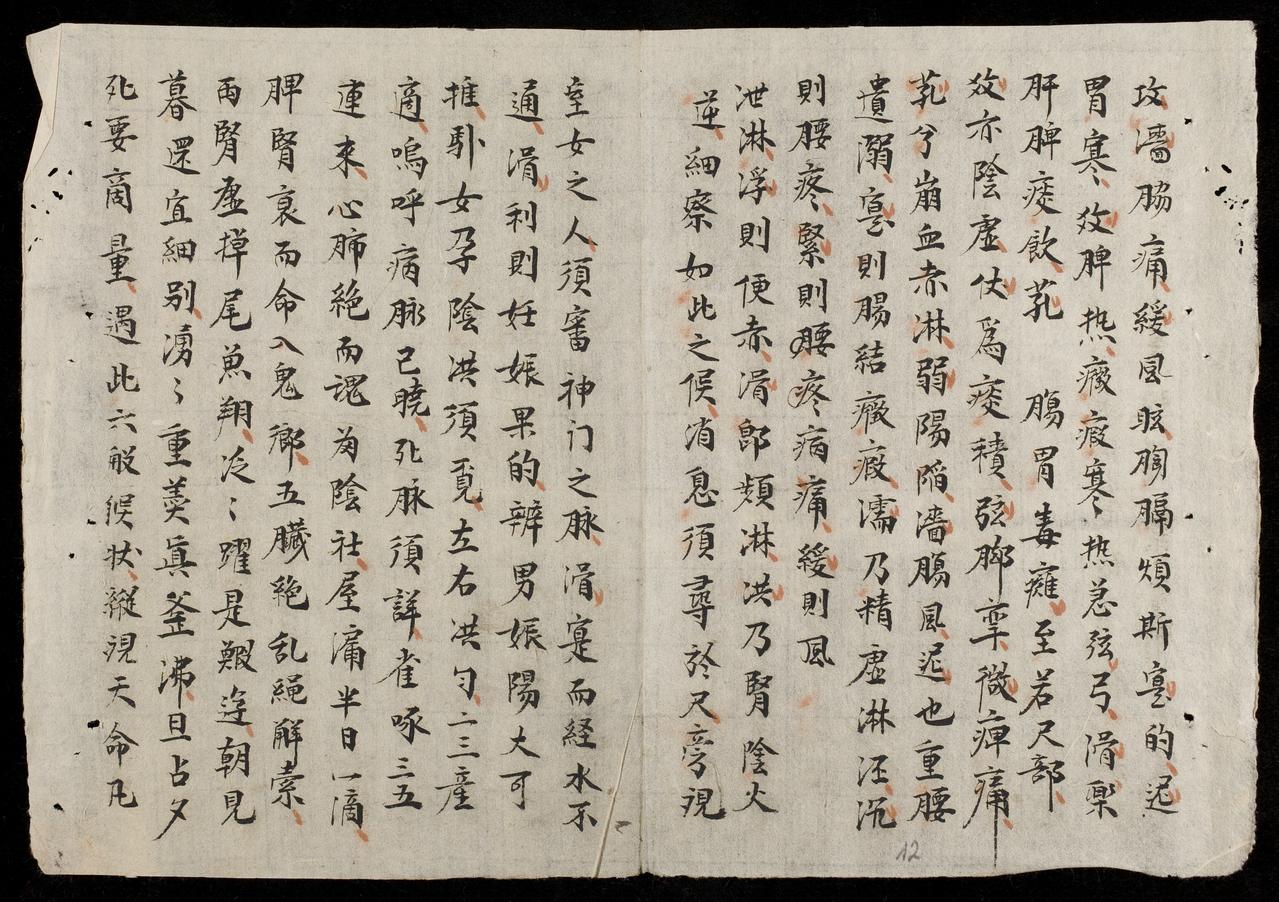 攻濇脇痛緩風眩胸膈煩斯寔的迟
胃寒寒攷脾热癥瘕寒寒热急弦弓滑樂
肝脾痰飲芤 腸胃毒癰至若尺部
攷亦陰虛伏爲痰積弦腳孪微痺痛
芤兮崩血赤淋弱陽陷濇腸風迟也重腰
遺溺寔則腸結癥瘕濡乃精虛淋汪沉
則腰疼緊則腰疼病痛緩則風
泄淋浮則便赤滑郎頻淋洪乃腎陰火
逆細察如此之候消息須尋於尺旁現
室女之人須審神门之脉滑寔而経水不
通滑利則妊娠果的辨男娠陽大可
推馱女孕陰洪須覓左右洪匀二三產
適嗚呼病脉已曉死脉須詳雀啄三五
連来心肺絕而魂為陰社屋漏半日一滴
脾腎衰而命入鬼鄉五臓絕乱繩解索
両腎虛掉尾魚翔泛〻躍是鰕逰朝見
暮還宜細别湧〻重羮眞釜沸旦占夕
死要啇量遇此六般候状縱現天命凡
12